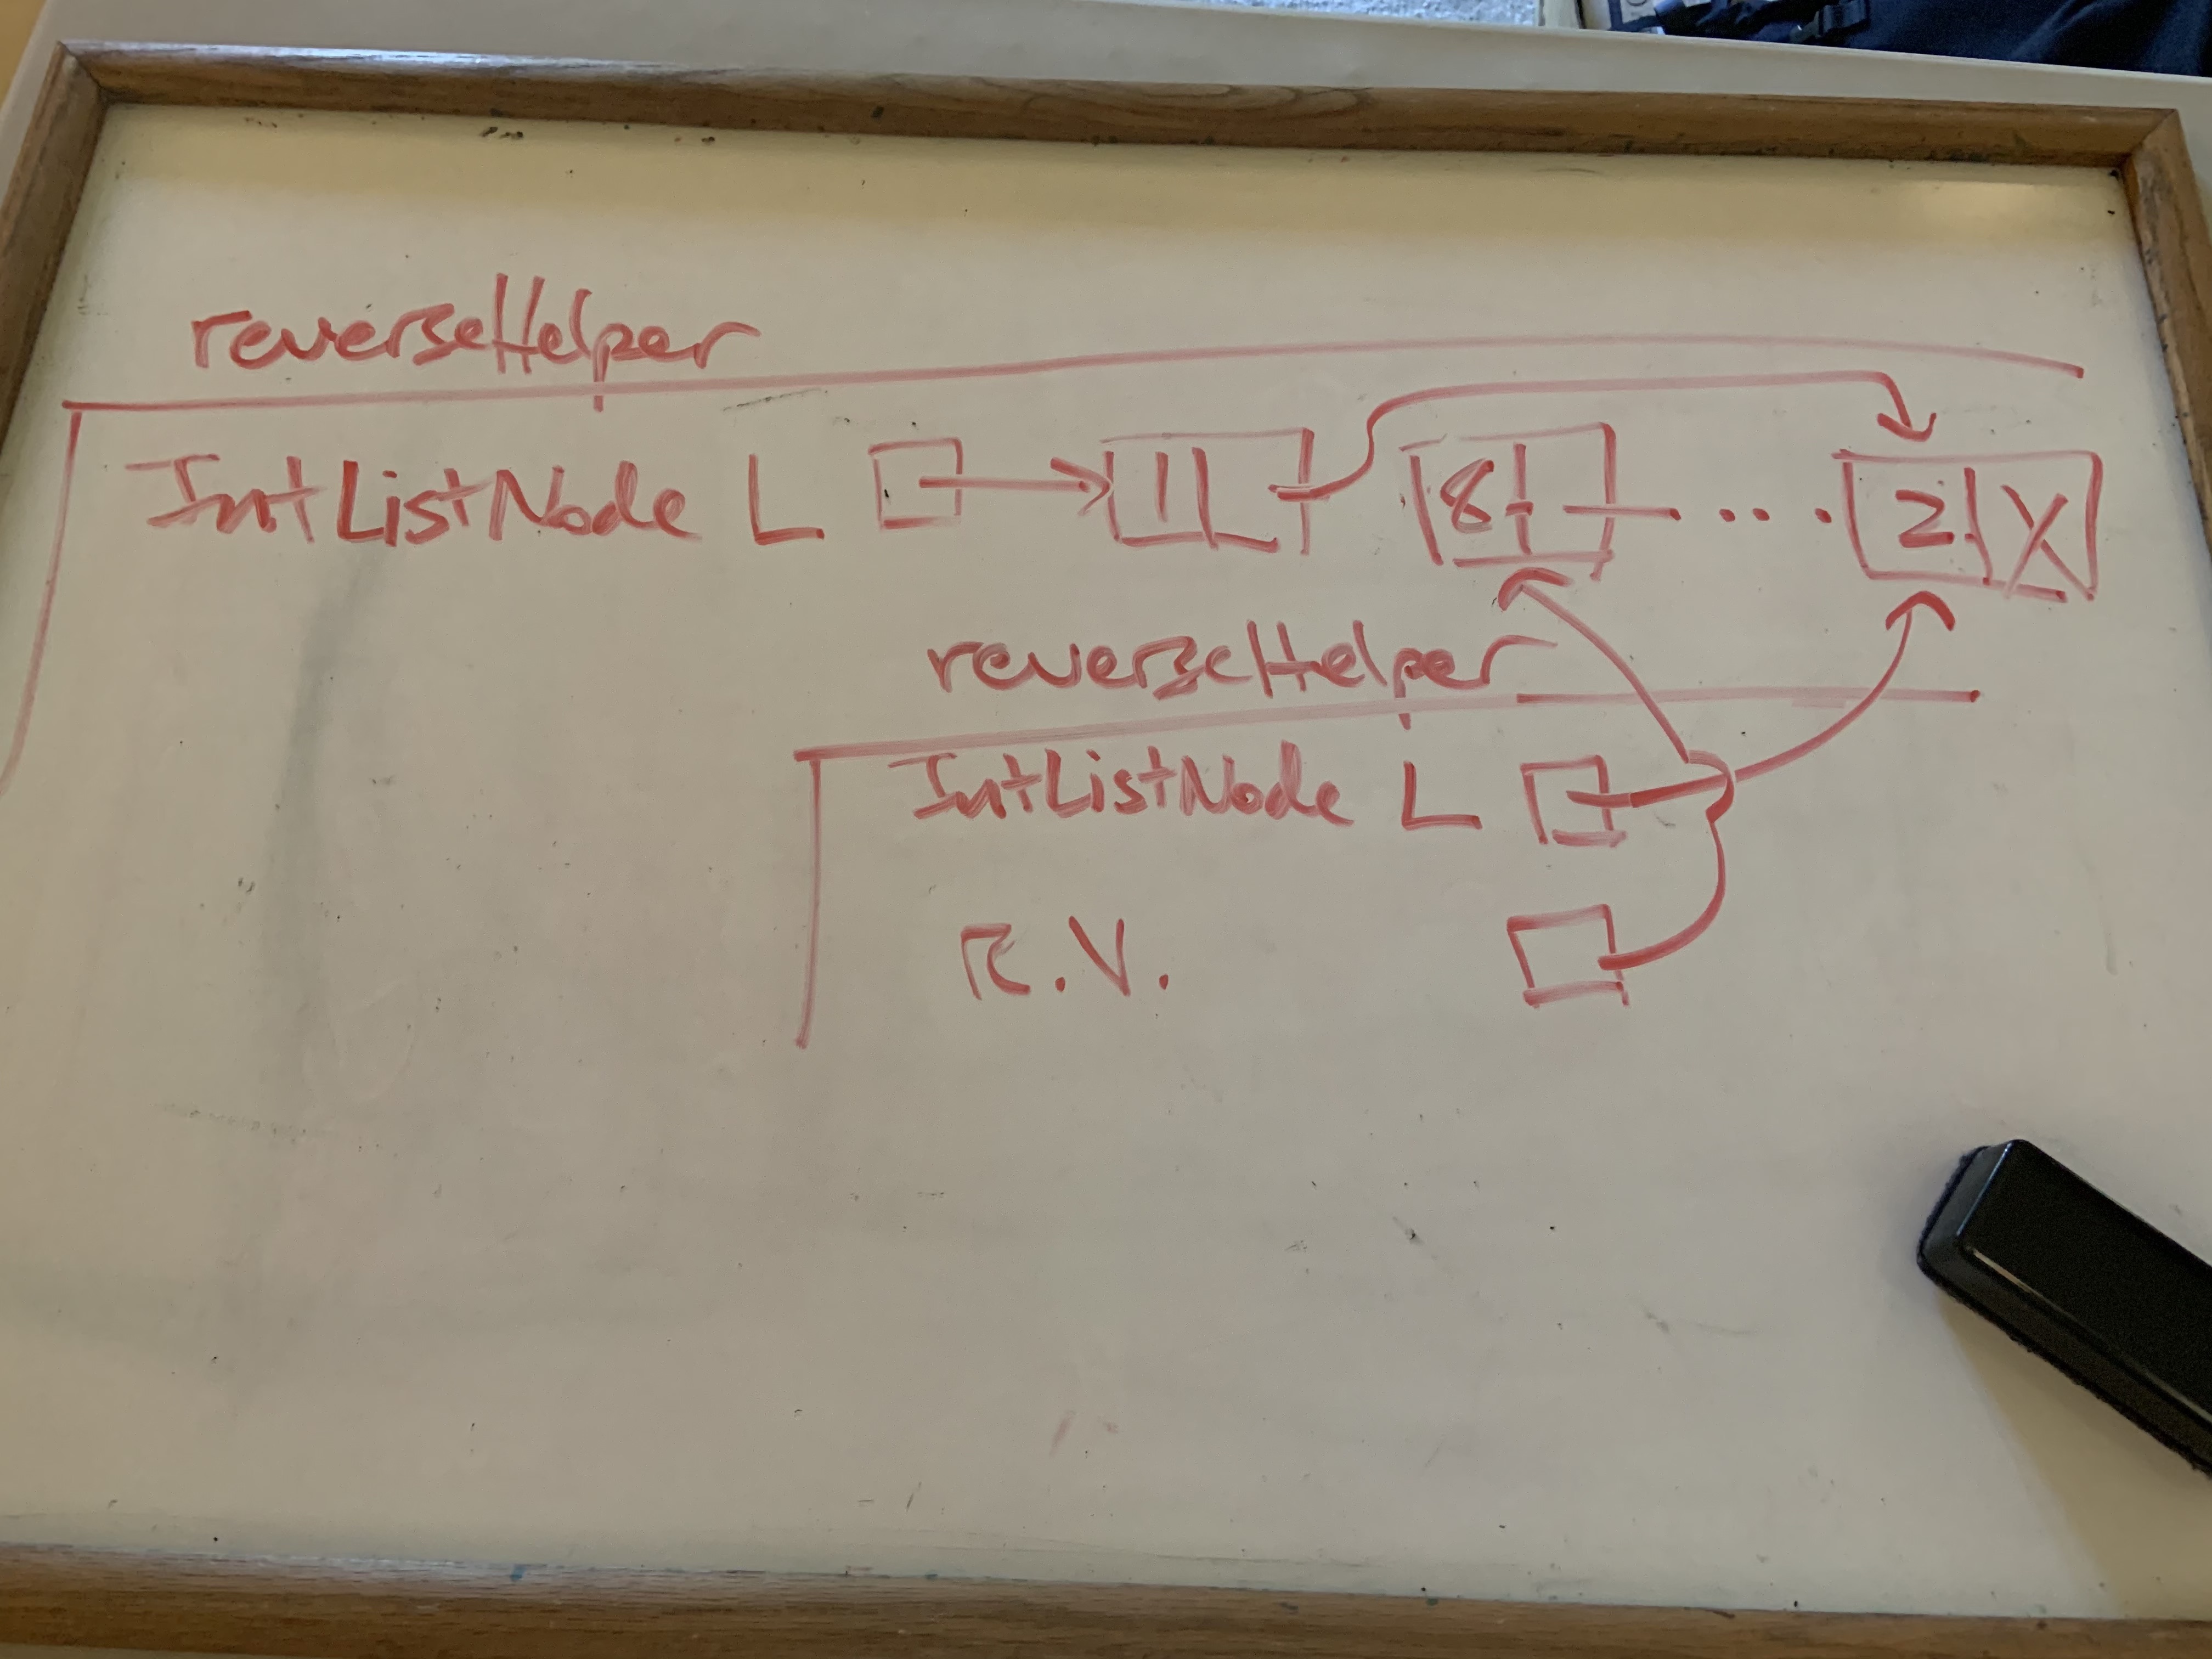 reverseHelper
IntListNode L 1 8 .... 2 X
reverseHelper
IntListNode L
R.V.